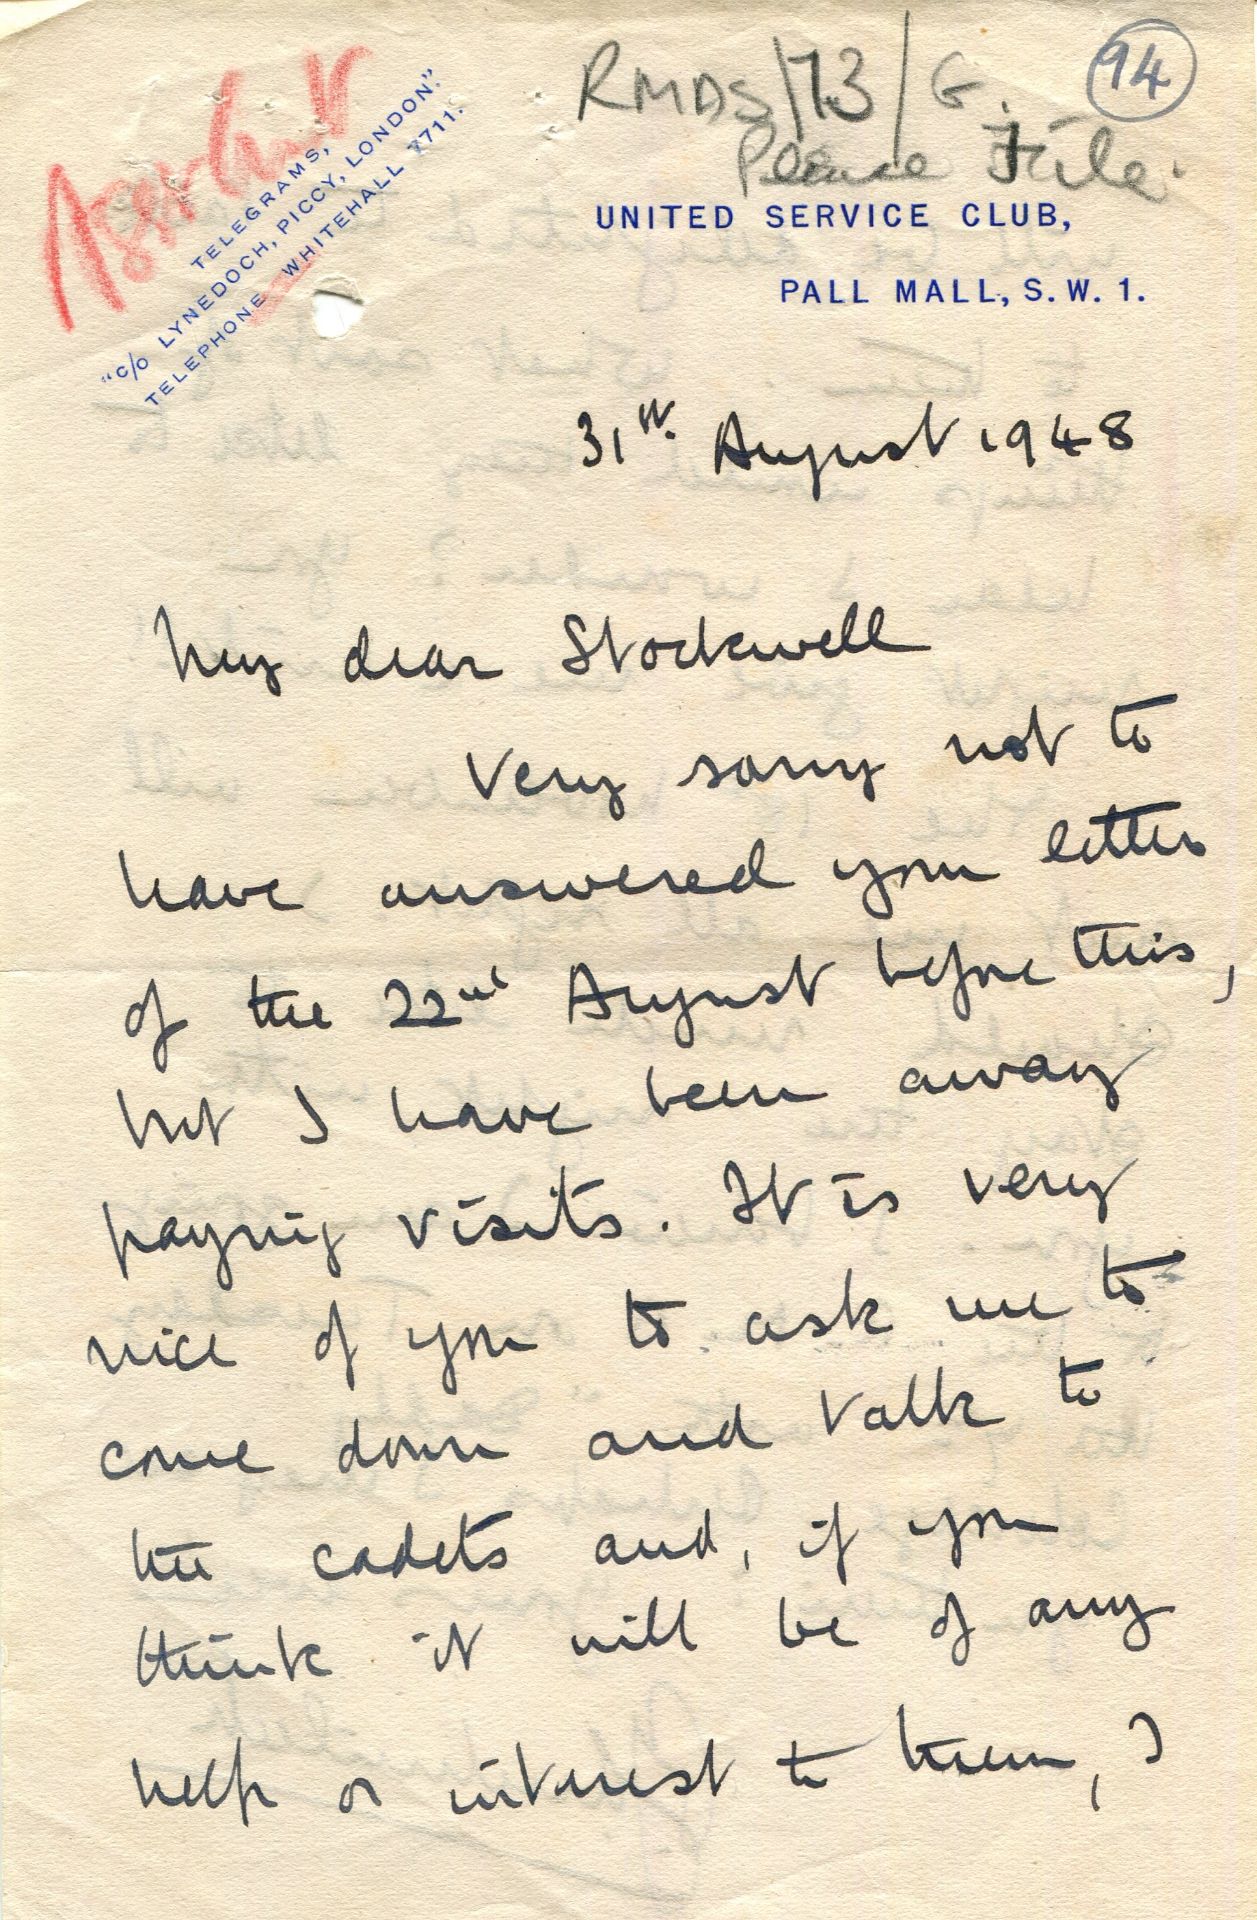 RMDS/73/G. 94
Please File.
TELEGRAMS,
"C/O LYNEDOCH, PICCY, LONDON".
TELEPHONE WHITEHALL 7711.
UNITED SERVICE CLUB,
PALL MALL, S.W.1.
31st. August 1948
My dear Stockwell
Very sorry not to
have answered your letter
of the 22nd August before this,
but I have been away
paying visits. It is very
nice of you to ask me to
come down and talk to
the cadets and, if you
think it will be of any
help or interest to them, I